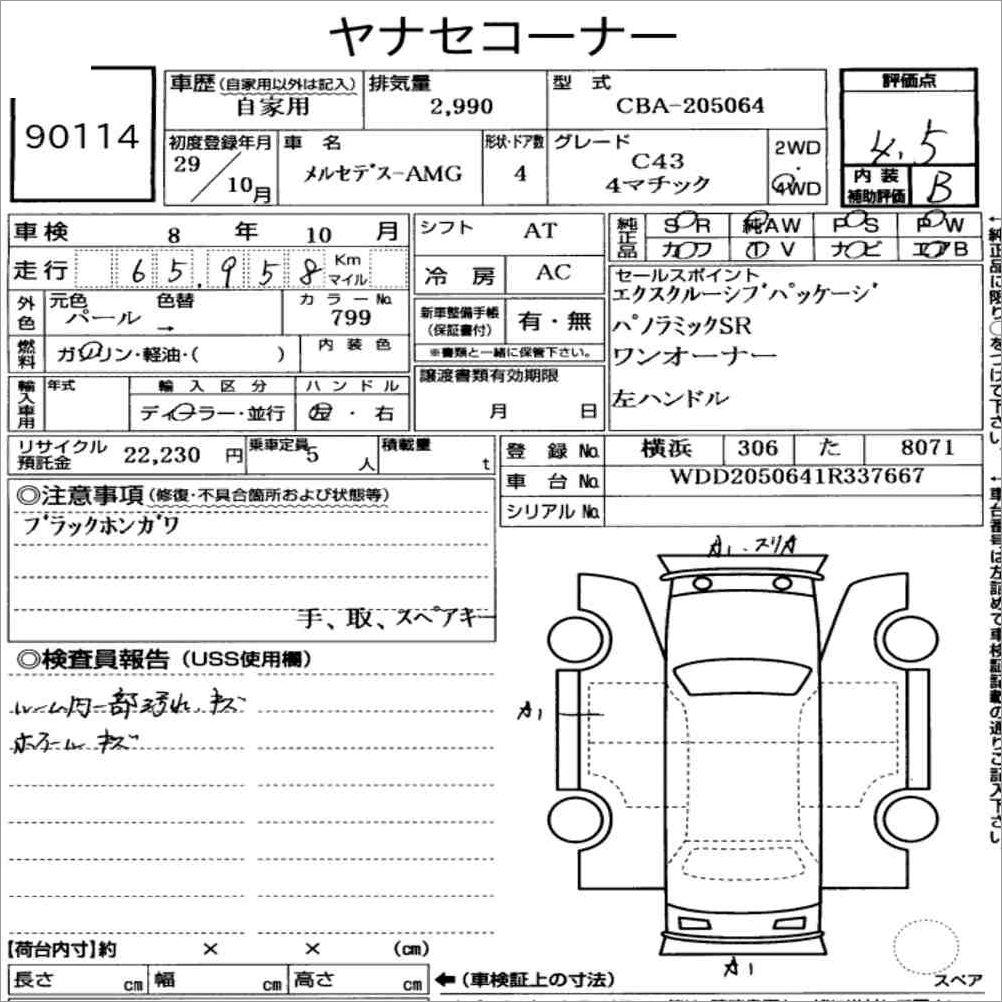 ヤナセコーナー
90114
車歴(自家用以外は記入) 排気量 型 式 評価点
自家用 2,990 CBA-205064 4.5
初度登録年月 車 名 形状・ドア数 グレード 2WD
29/10月 メルセデス-AMG 4 C43 ・
4マチック 4WD
内装補助評価 B
車検 8 年 10 月 シフト AT 純正品 SR 純AW PS PW
カワ TV ナビ エアB
走行 65,958 Km マイル 冷 房 AC セールスポイント
エクスクルーシブパッケージ
外色 元色 色替 カラーNo. 新車整備手帳(保証書付) 有・無 パノラミックSR
パール → 799 ※書類と一緒に保管下さい。 ワンオーナー
燃料 ガソリン・軽油・( ) 内装色 譲渡書類有効期限
左ハンドル
輸入車用 年式 輸入区分 ハンドル 月 日
ディーラー・並行 左・右
リサイクル預託金 22,230 円 乗車定員 5 人 積載量 t 登 録 No. 横浜 306 た 8071
車 台 No. WDD2050641R337667
◎注意事項(修復・不具合箇所および状態等) シリアル No.
ブラックホンガワ
手、取、スペアキー
A1.スリA
◎検査員報告(USS使用欄)
ルーム内一部汚れ、キズ
ホイールキズ
A1
A1
【荷台内寸】約 × × (cm)
長さ cm 幅 cm 高さ cm ←(車検証上の寸法)
スペア
←純正品に限り○をつけて下さい。
←車台番号は左詰めで車検証記載の通りご記入下さい